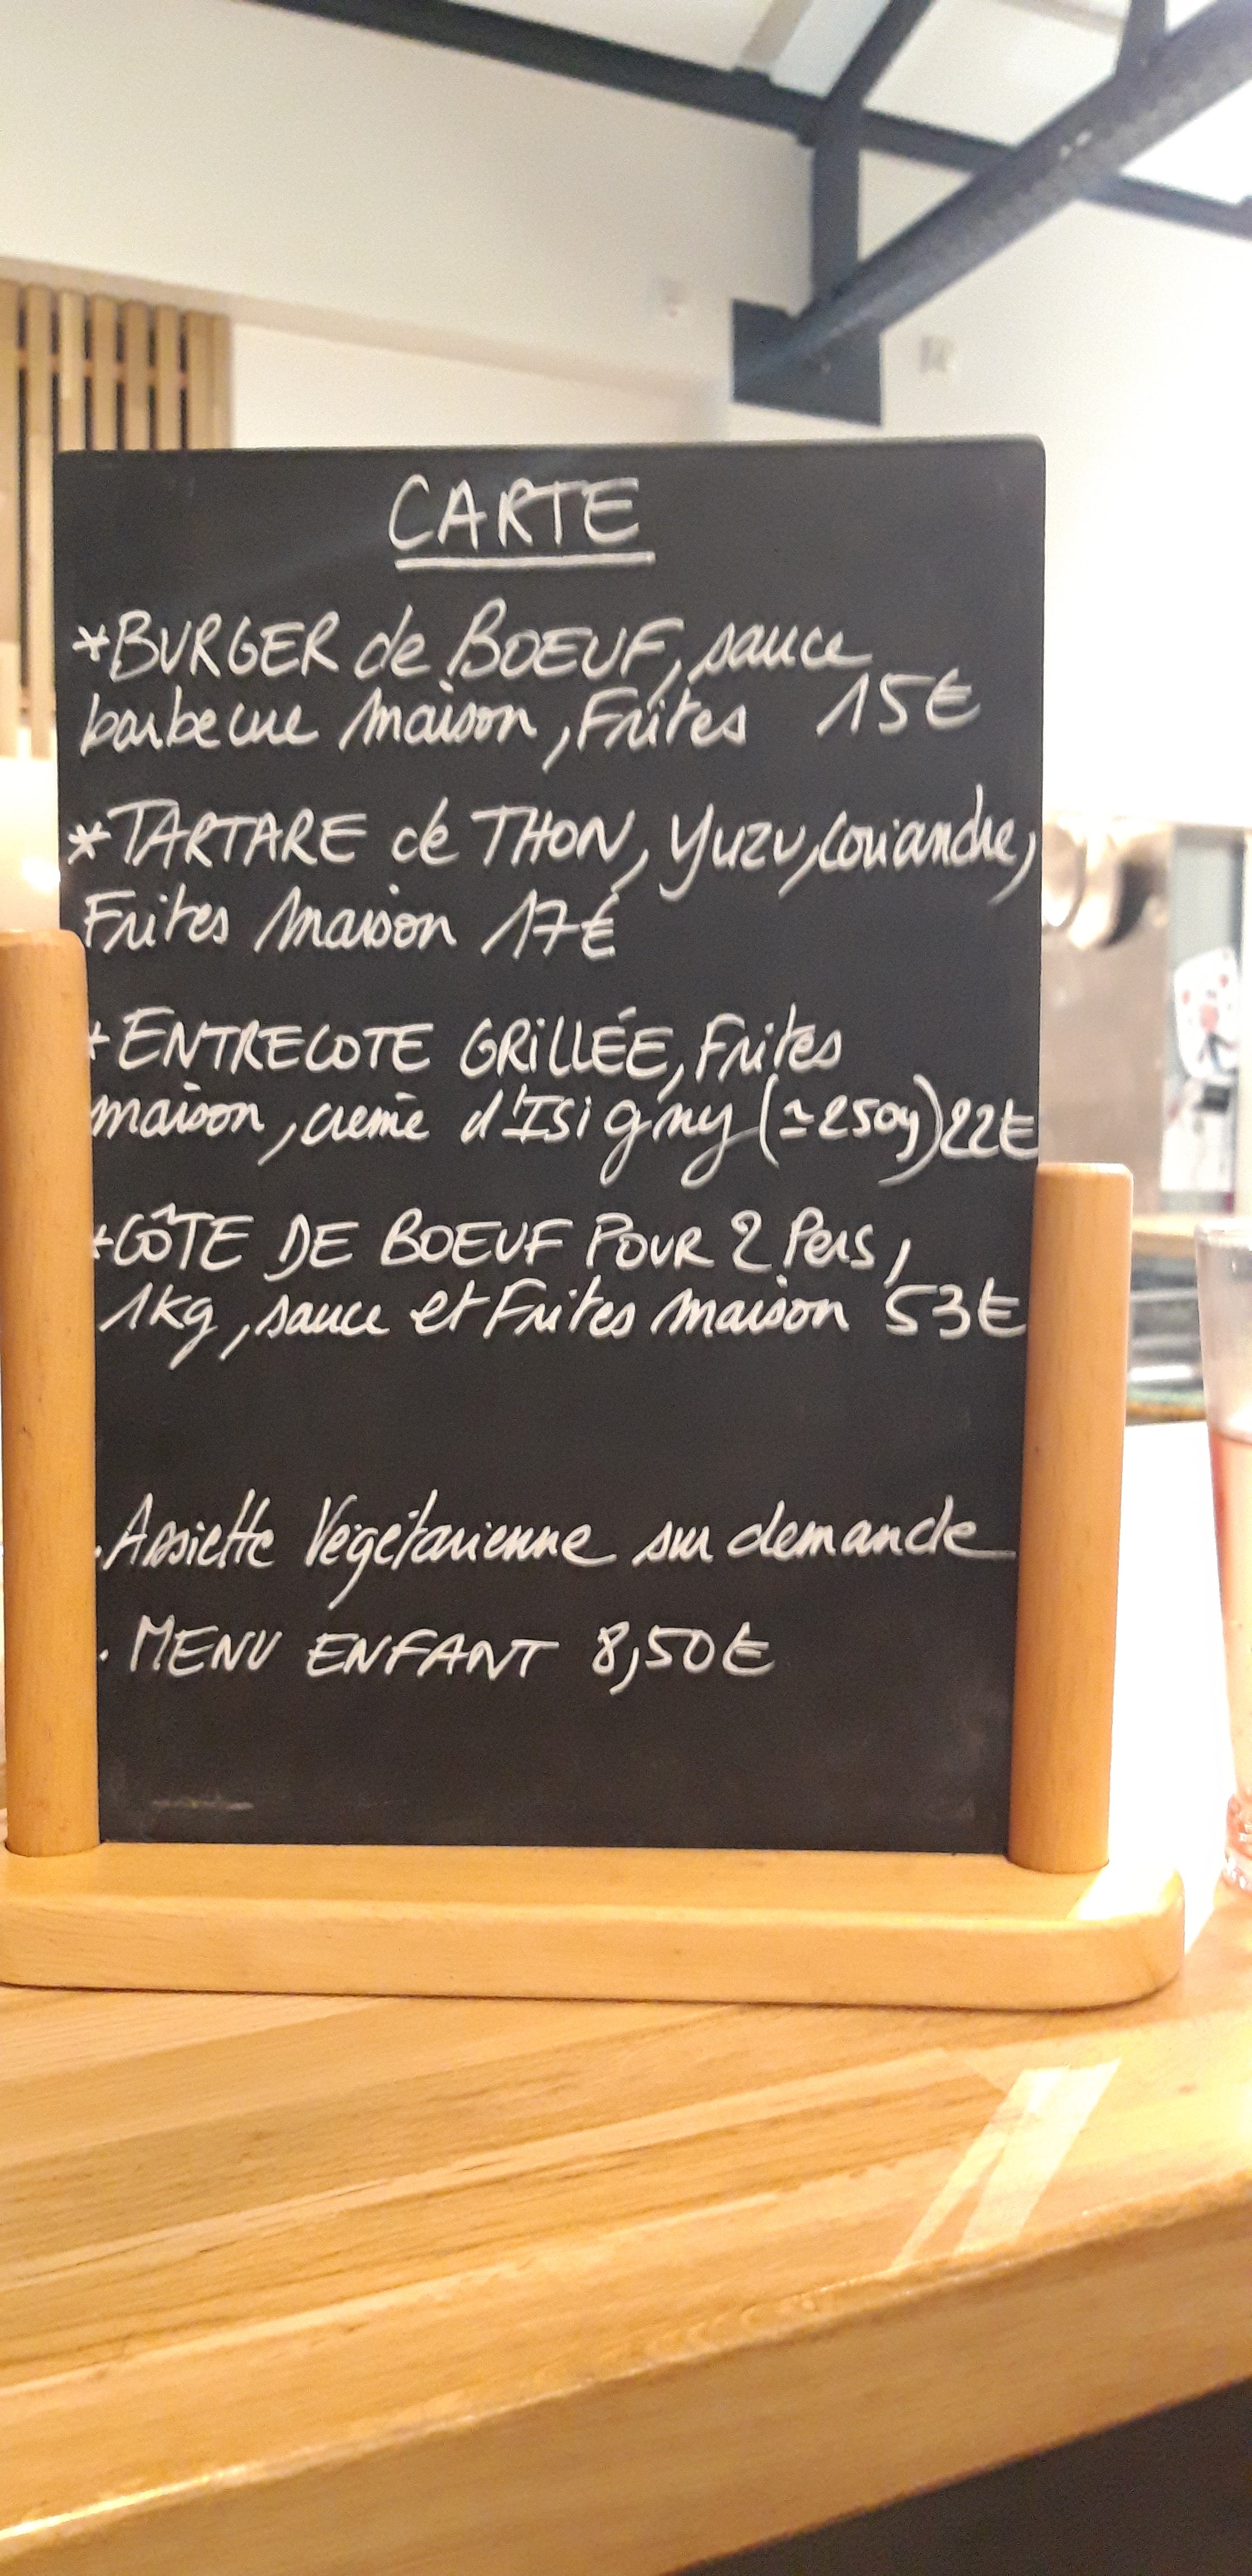 CARTE
*BURGER de BOEUF, sauce
barbecue maison, Frites 15€
*TARTARE de THON, Yuzu, coriandre,
Frites maison 17€
*ENTRECOTE GRILLÉE, Frites
maison, crème d'Isigny (≃250g) 22€
*CÔTE DE BOEUF POUR 2 Pers,
1kg, sauce et Frites maison 53€
. Assiette Végétarienne sur demande
. MENU ENFANT 8,50€